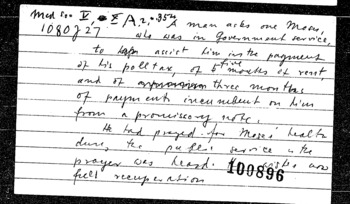 Med soc V, Σ A. 2. 354 A man asks one Moses,
1080 J 27 who was in government service,
to assist him in the payment
of his poll tax, of 5 months of rent
and of three months
of payments incumbent on him
from a promissory note.
He had prayed for Moses' health
the public service the
prayer was heard. now
full recuperation
100896